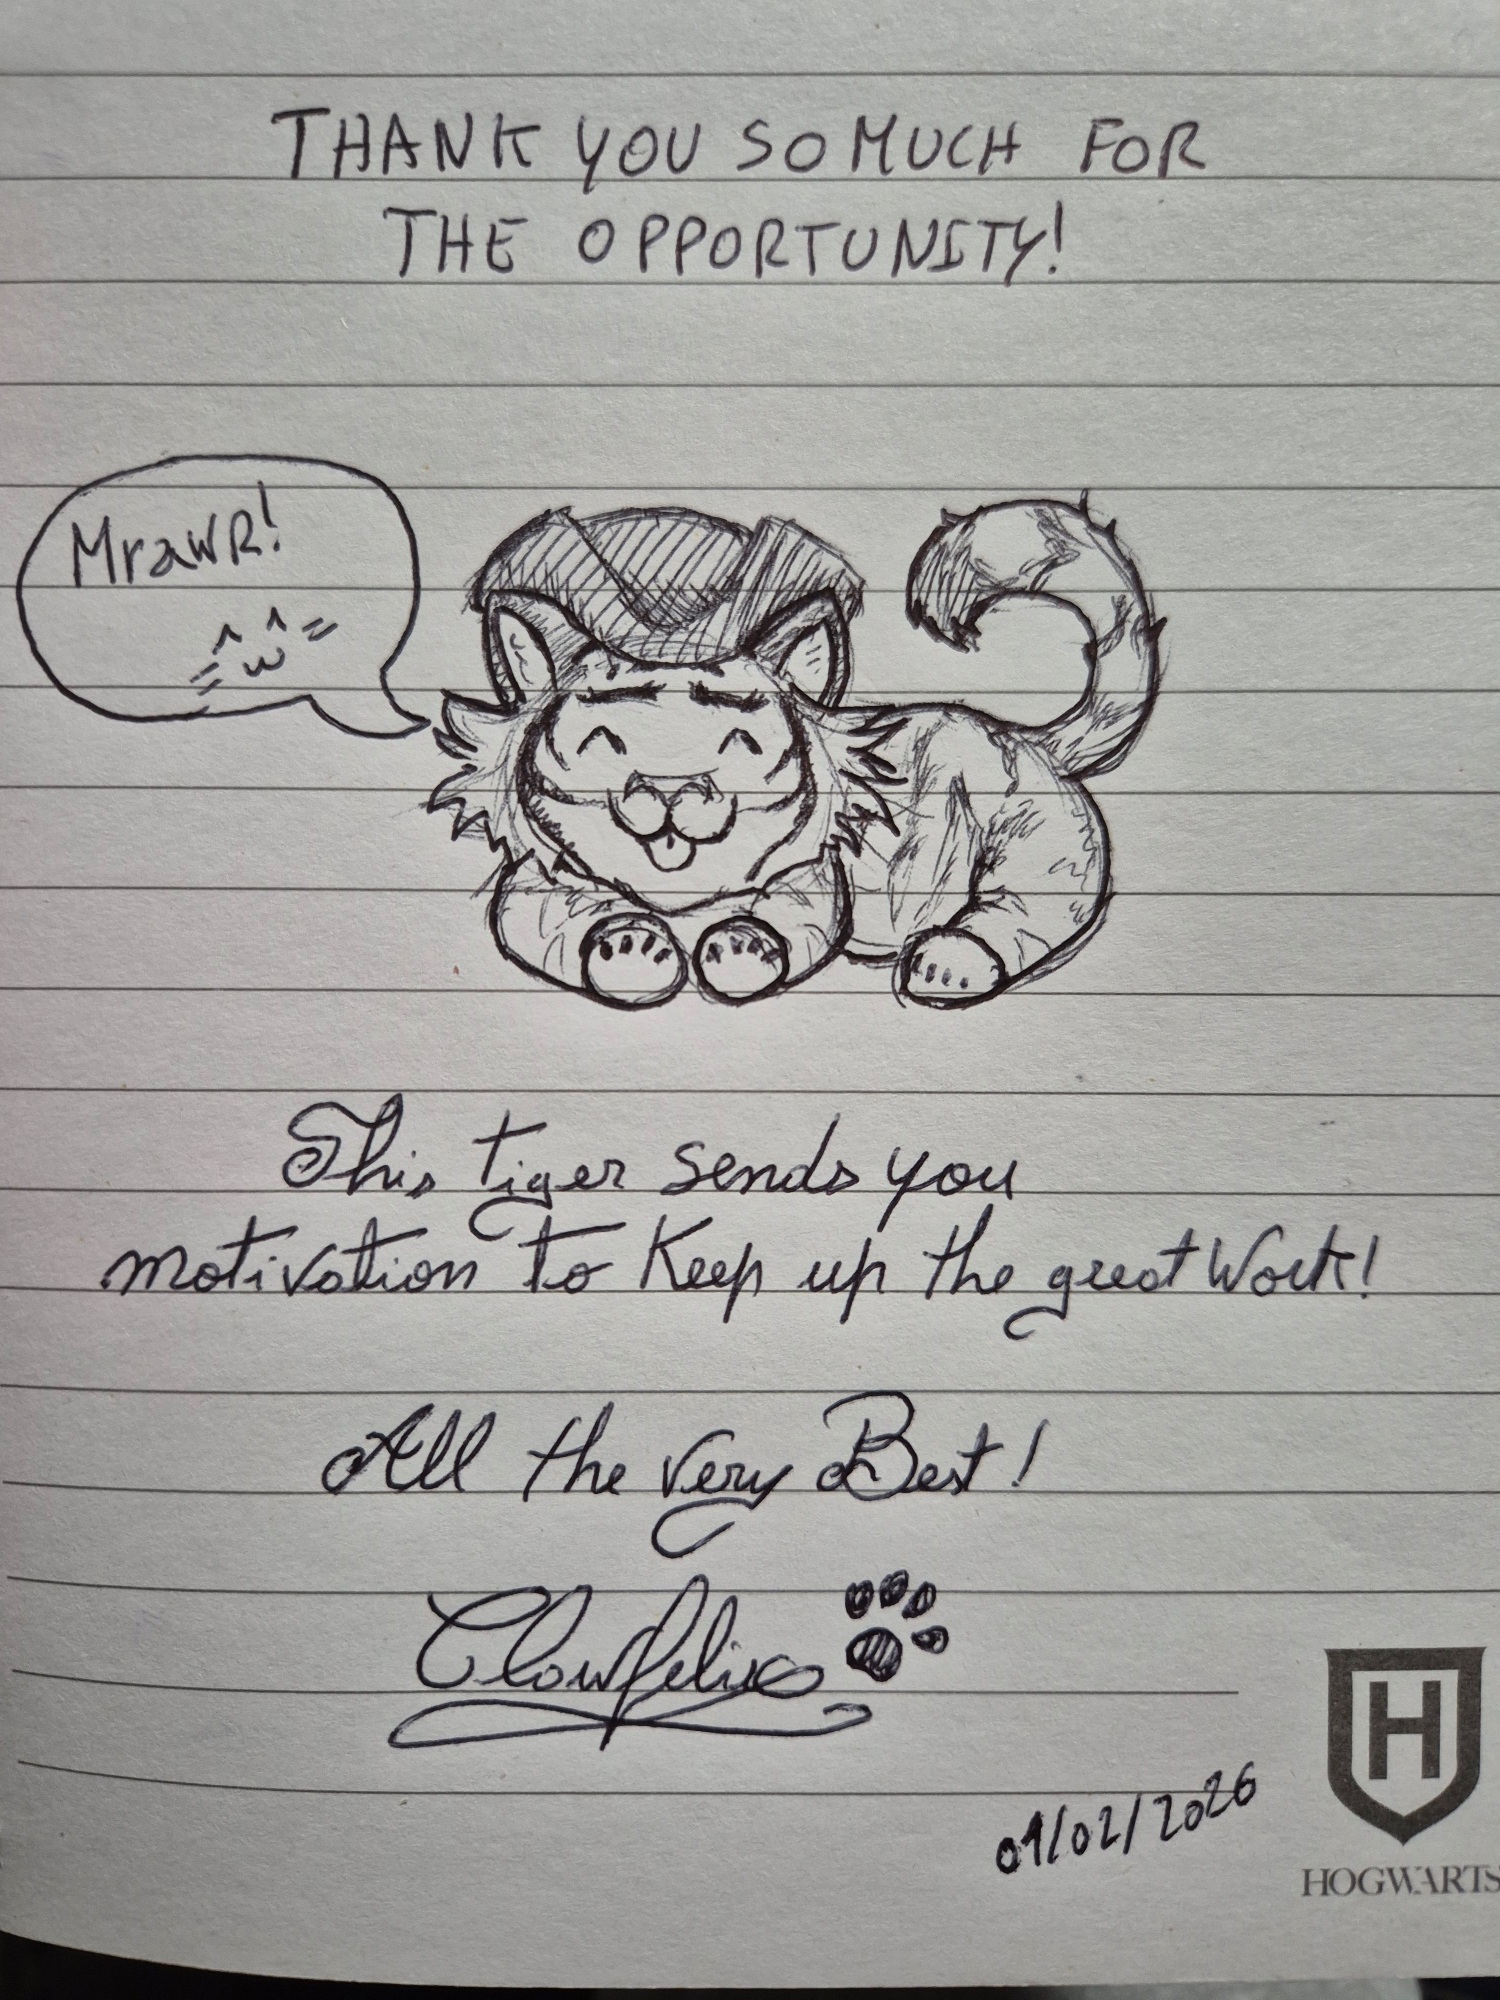 THANK YOU SO MUCH FOR
THE OPPORTUNITY!
MrawR!
=^w^=
This tiger sends you
motivation to Keep up the great Work!
All the very Best!
Clawfelix
01/02/2026
H
HOGWARTS